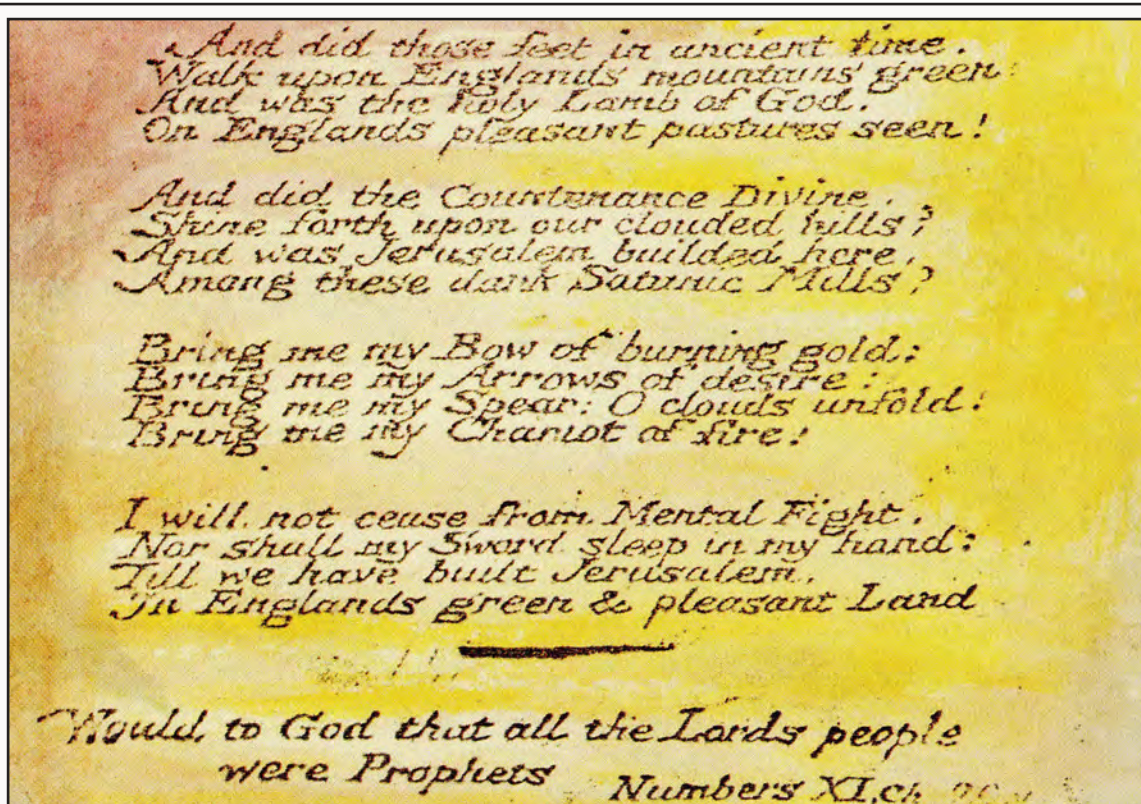 And did those feet in ancient time.
Walk upon Englands mountains green:
And was the holy Lamb of God.
On Englands pleasant pastures seen!
And did the Countenance Divine.
Shine forth upon our clouded hills?
And was Jerusalem builded here,
Among these dark Satanic Mills?
Bring me my Bow of burning gold:
Bring me my Arrows of desire:
Bring me my Spear: O clouds unfold!
Bring me my Chariot of fire!
I will not cease from Mental Fight,
Nor shall my Sword sleep in my hand:
Till we have built Jerusalem,
In Englands green & pleasant Land
Would to God that all the Lords people
were Prophets
Numbers XI.ch